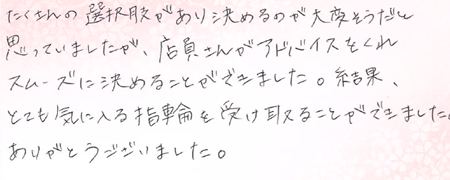 たくさんの選択肢があり決めるのが大変そうだと
思っていましたが、店員さんがアドバイスをくれ
スムーズに決めることができました。結果、
とても気に入る指輪を受け取ることができました。
ありがとうございました。